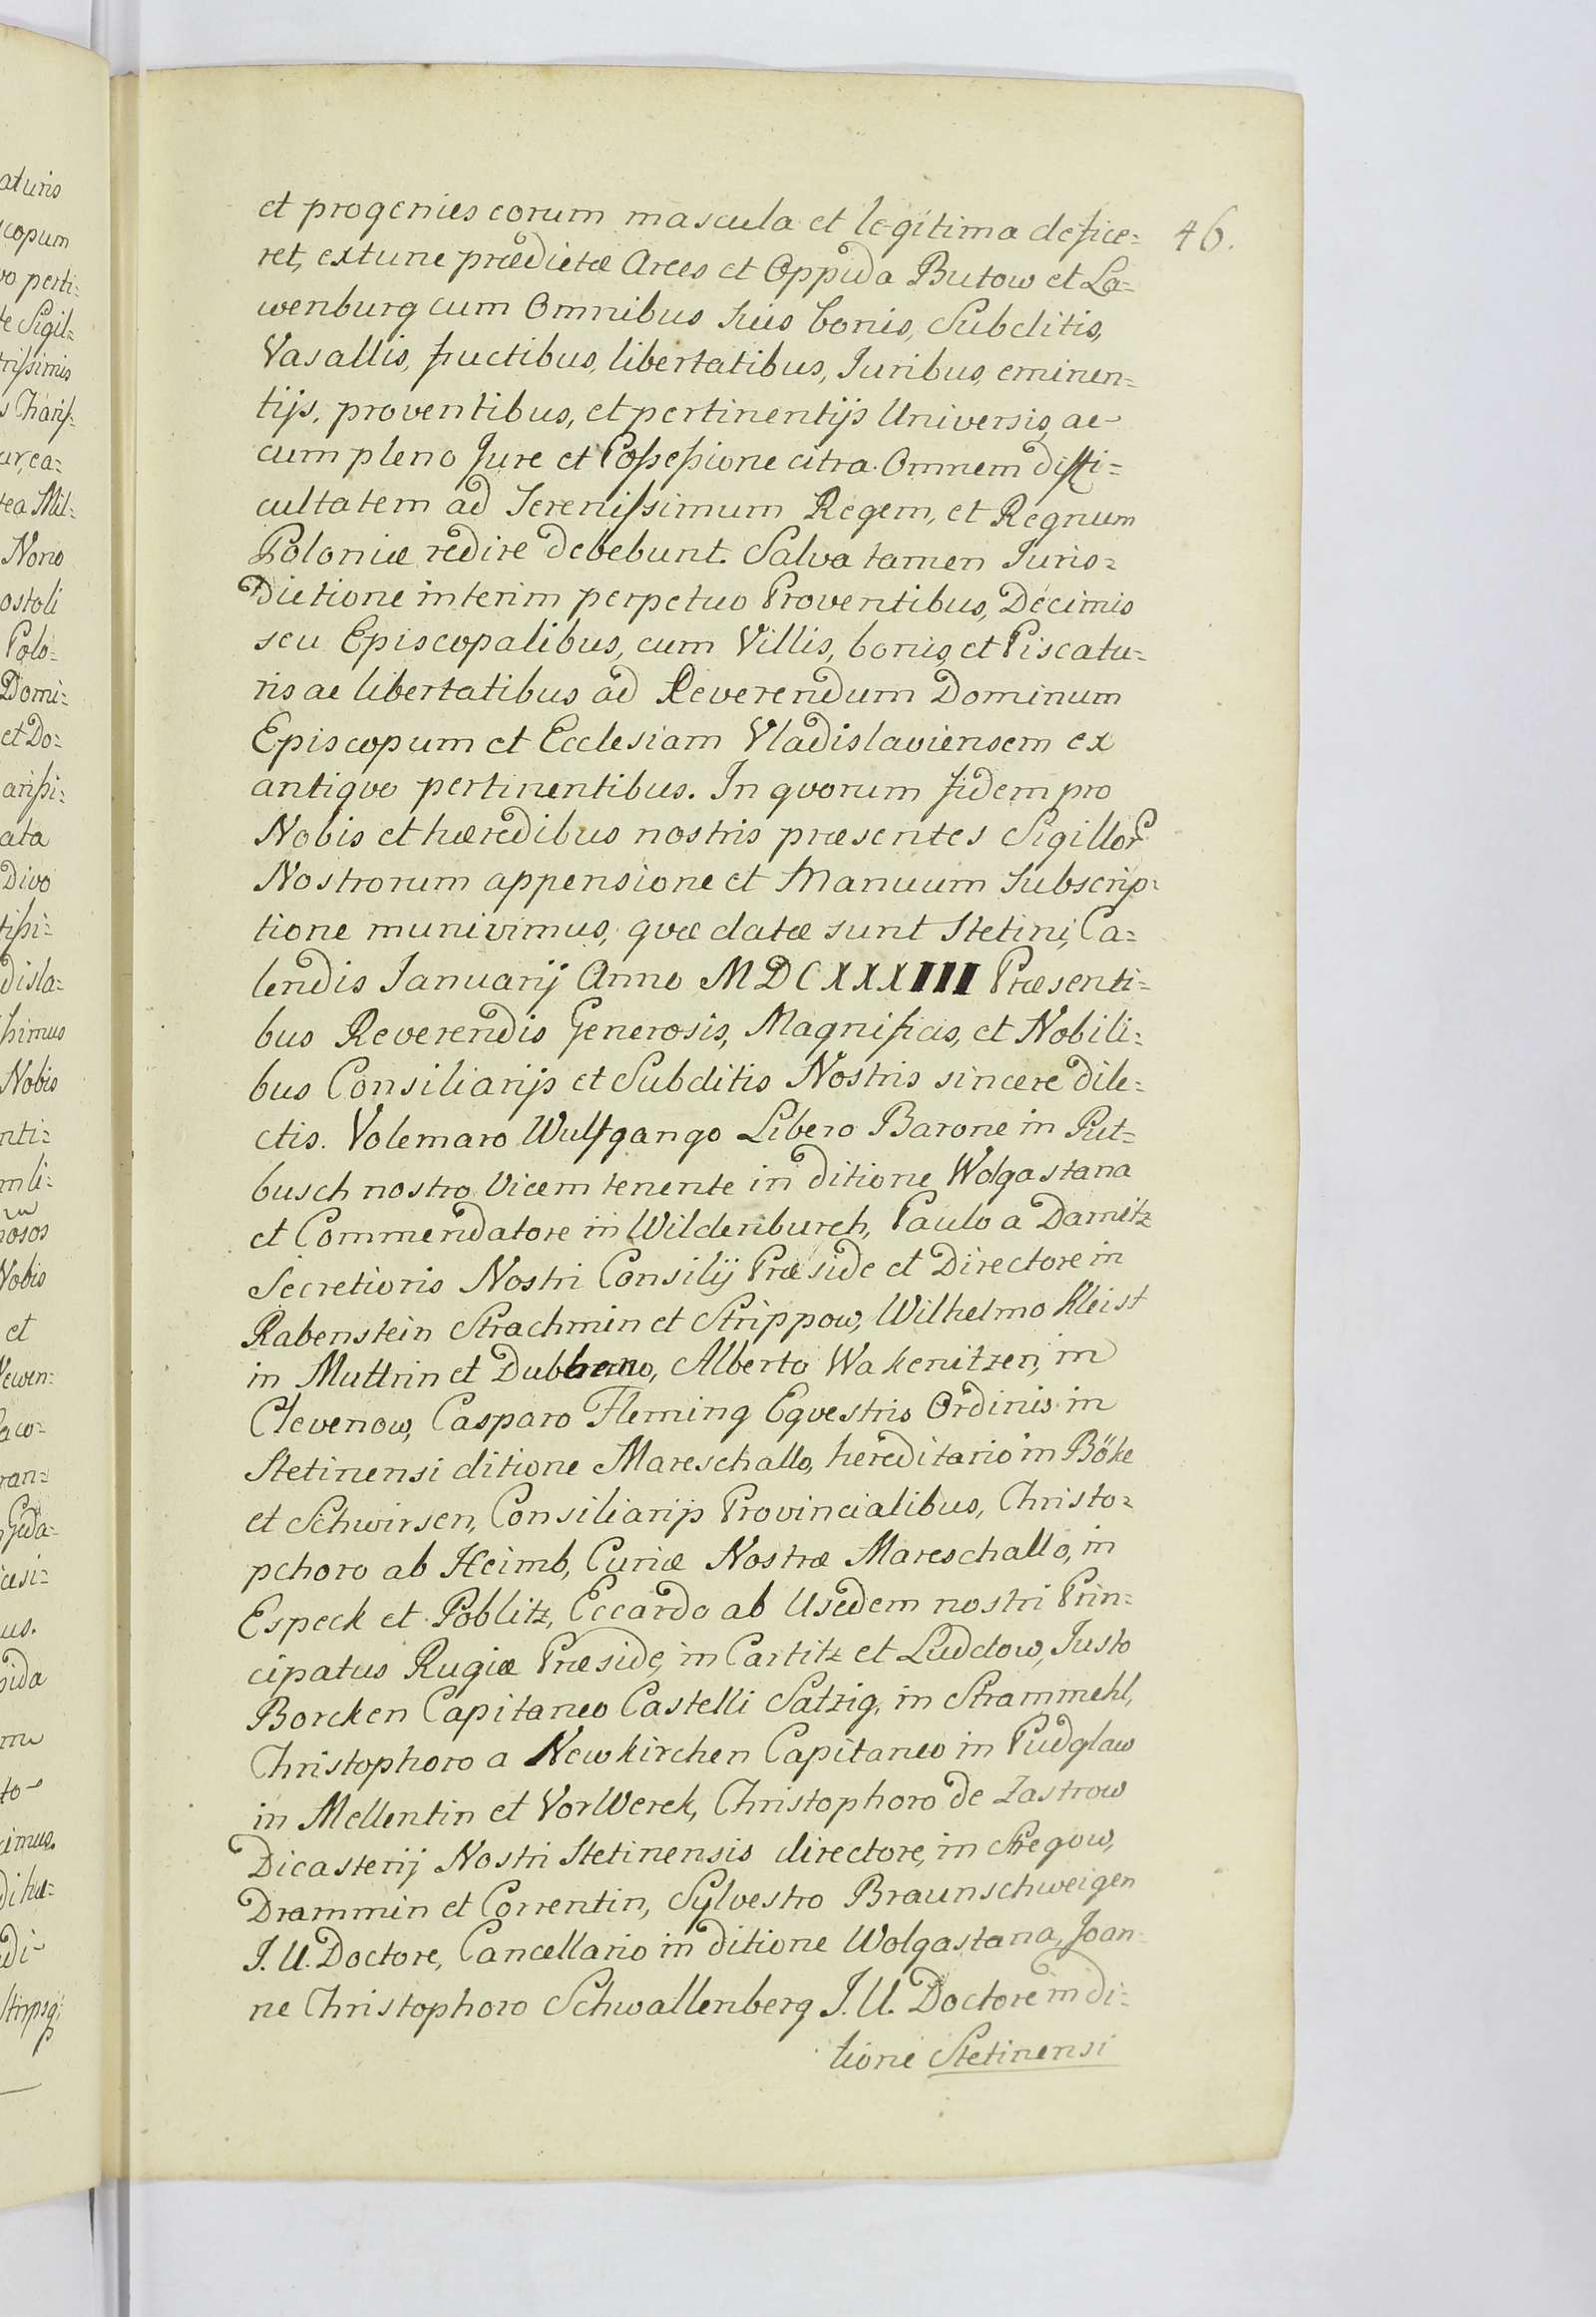 46.
et progenies eorum mascula et legitima defice=
ret, extunc prædictæ Arces et Oppida Butow et La=
wenburg cum Omnibus suis bonis, Subditis,
Vasallis, fructibus, libertatibus, Juribus, eminen=
tijs, proventibus, et pertinentijs Universis, ac
cum pleno Jure et Poſseſsione citra Omnem diffi=
cultatem ad Sereniſsimum Regem, et Regnum
Poloniæ redire debebunt. Salva tamen Juris=
Dictione interim perpetuo Proventibus, Decimis
seu Episcopalibus, cum Villis, bonis, et Piscatu=
ris ac libertatibus ad Reverendum Dominum
Episcopum et Ecclesiam Vladislaviensem ex
antiqvo pertinentibus. In qvorum fidem pro
Nobis et hæredibus nostris præsentes Sigillor
Nostrorum appensione et Manuum Subscrip=
tione munivimus, qvæ datæ sunt Stetini, Ca=
lendis Januarij Anno MDCXXXIII Præsenti=
bus Reverendis Generosis, Magnificis, et Nobili=
bus Consiliarijs et Subditis Nostris sincere dile=
ctis. Volemaro Wulfgango Libero Barone in Put=
busch nostro Vicem tenente in ditione Wolgastana
et Commendatore in Wildenburch, Paulo a Damitz
Secretioris Nostri Consilij Præside et Directore in
Rabenstein Strachmin et Strippow, Wilhelmo Kleist
in Muttrin et , Alberto Wakenitzen, in
Clevenow, Casparo Fleming Eqvestris Ordinis in
Stetinensi ditione Mareschallo, hereditario in Böke
et Schwirsen, Consiliarijs Provincialibus, Christo=
pchoro ab Heimb, Curiæ Nostræ Mareschallo, in
Especk et Poblitz, Eccardo ab Usedem nostri Prin=
cipatus Rugiæ Præside, in Cartitz et Luddow, Justo
Borcken Capitaneo Castelli Satzig, in Strammehl,
Christophoro a Newkirchen Capitaneo in Pudglaw
in Mellentin et VorWerck, Christophoro de Zastrow
Dicasterij Nostri Stetinensis directore, in Stregow,
Drammin et Correntin, Sylvestro Braunschweigen
J. U. Doctore, Cancellario in ditione Wolgastana, Joan=
ne Christophoro Schwallenberg J. U. Doctore in di=
tione Stetinensi